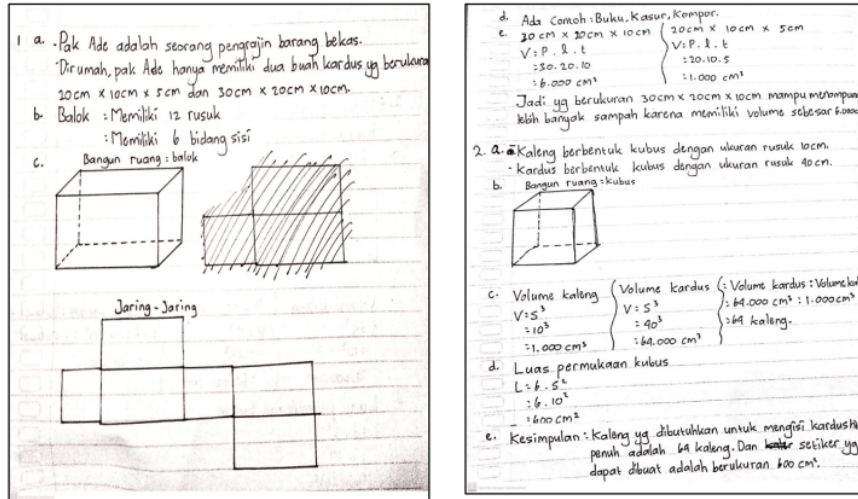 1 a. · Pak Ade adalah seorang pengrajin barang bekas.
· Dirumah, pak Ade hanya memiliki dua buah kardus yg berukuran
20 cm × 10 cm × 5 cm dan 30 cm × 20 cm × 10 cm.
b. Balok : Memiliki 12 rusuk
: Memiliki 6 bidang sisi
c. Bangun ruang : balok
Jaring - Jaring
d. Ada Contoh : Buku, Kasur, Kompor.
e. 30 cm × 20 cm × 10 cm
V = P . l . t
= 30 . 20 . 10
= 6.000 cm³
20 cm × 10 cm × 5 cm
V = P . l . t
= 20 . 10 . 5
= 1.000 cm³
Jadi yg berukuran 30 cm × 20 cm × 10 cm mampu menampun
lebih banyak sampah karena memiliki volume sebesar 6.000
2. a. · Kaleng berbentuk kubus dengan ukuran rusuk 10 cm.
- Kardus berbentuk kubus dengan ukuran rusuk 40 cm.
b. Bangun ruang : Kubus
c. Volume kaleng
V = S³
= 10³
= 1.000 cm³
Volume kardus
V = S³
= 40³
= 64.000 cm³
: Volume kardus : Volume ka
: 64.000 cm³ : 1.000 cm³
: 64 kaleng.
d. Luas permukaan kubus
L = 6 . S²
= 6 . 10²
= 600 cm²
e. Kesimpulan : Kaleng yg dibutuhkan untuk mengisi kardus h
penuh adalah 64 kaleng. Dan setiker yg
dapat dibuat adalah berukuran 600 cm².